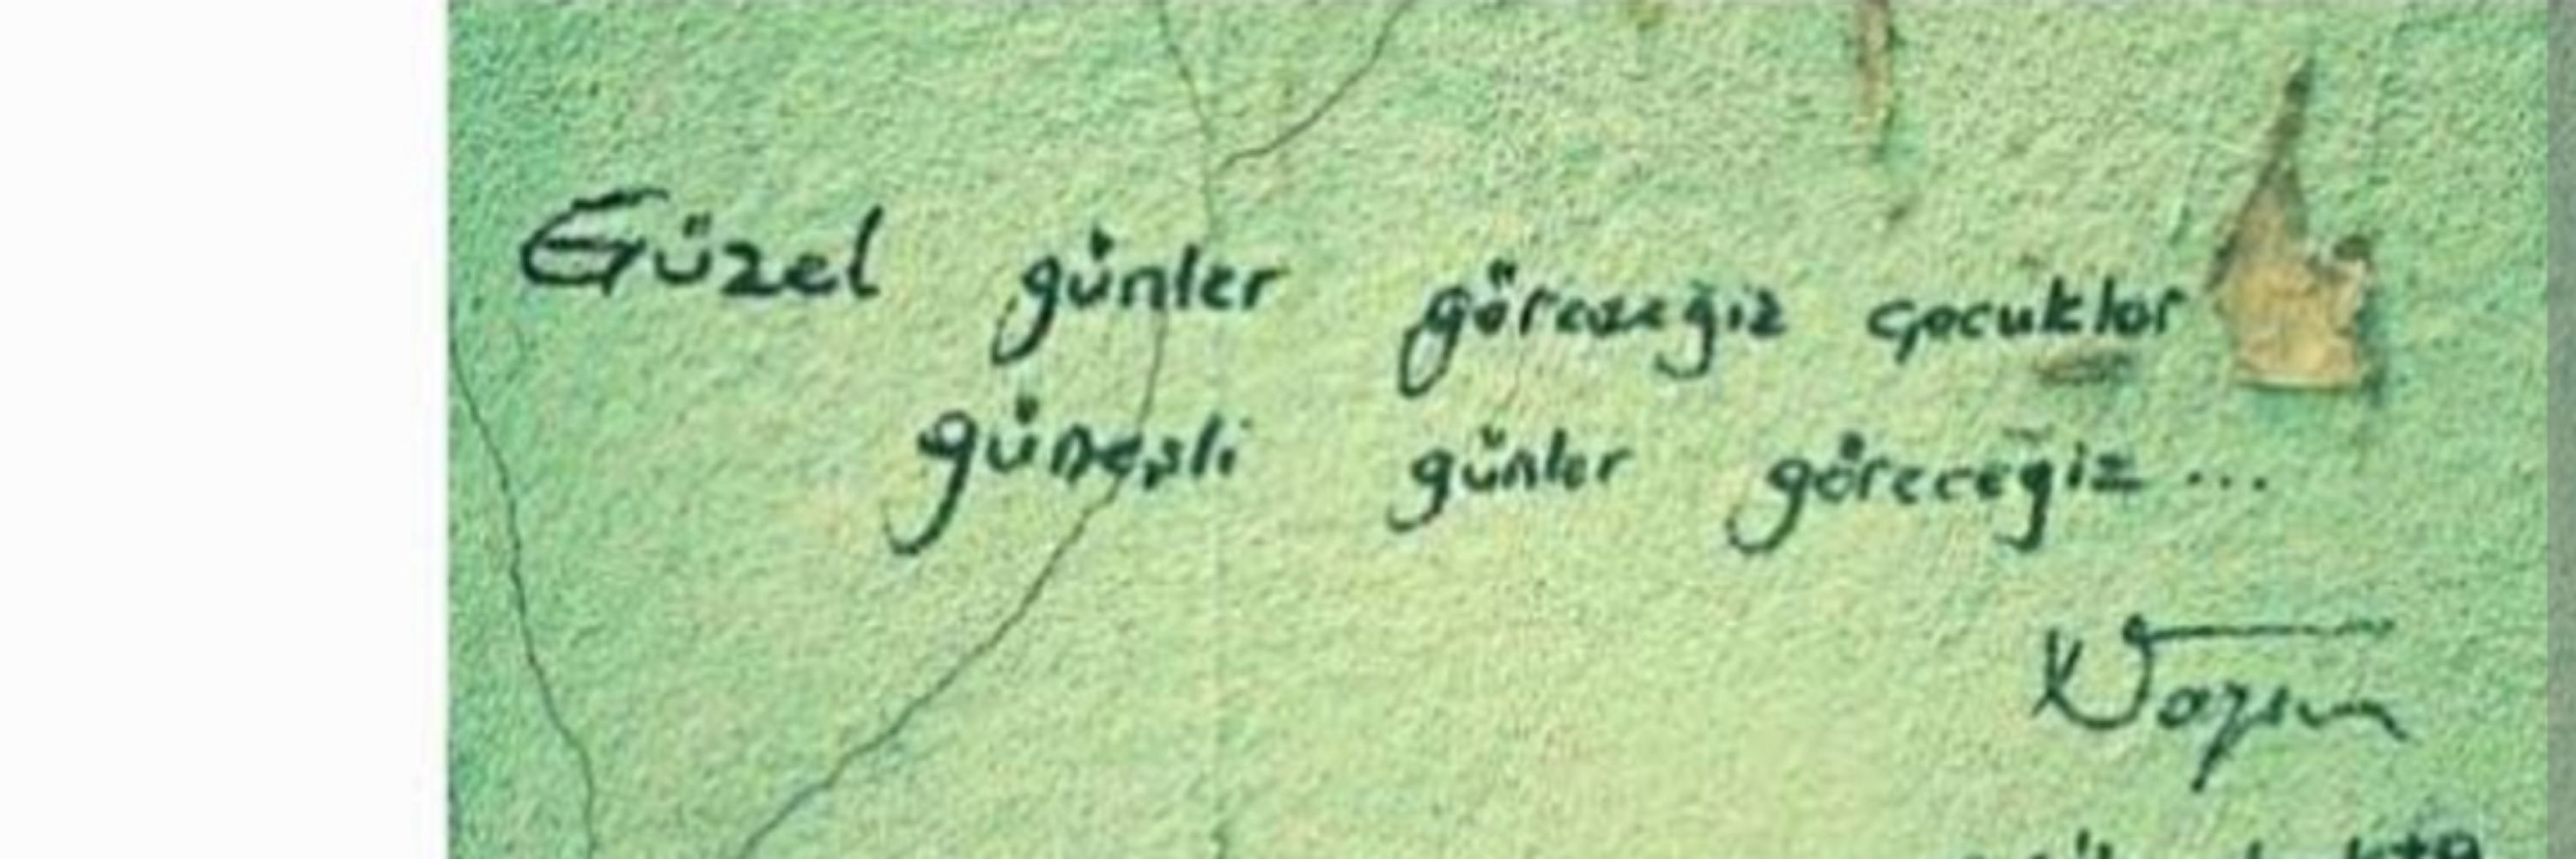 Güzel günler göreceğiz çocuklar
güneşli günler göreceğiz...
Nazım